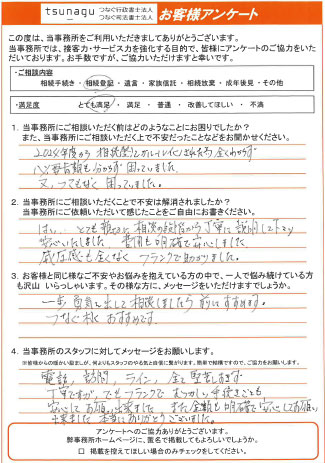 tsunagu つなぐ行政書士法人
つなぐ司法書士法人
お客様アンケート
この度は、当事務所をご利用いただきましてありがとうございます。
当事務所では、接客力・サービス力を強化する目的で、皆様にアンケートのご協力をいた
だいております。お手数ですが、ご協力いただけますと幸いです。
・ご相談内容
相続手続き・相続登記・遺言・家族信託・相続放棄・成年後見・その他
・満足度
とても満足・満足・普通・改善してほしい・不満
1. 当事務所にご相談いただく前はどのようなことにお困りでしたか?
また、当事務所にご相談いただく上で不安だったことなどをお聞かせください。
2024年度から相続登記が
必要書類も分からず困っていました。
又、つてもなく困っていました。
2. 当事務所にご相談いただくことで不安は解消されましたか?
当事務所にご依頼いただいて感じたことをご自由にお書きください。
はい。とても親切に相談の段階から丁寧に説明して下さり
安心いたしました 費用も明確で安心しました
威圧感も全くなく フランクで助かりました。
3. お客様と同様なご不安やお悩みを抱えている方の中で、一人で悩み続けている方
も沢山いらっしゃいます。その様な方に、メッセージをいただけますでしょうか。
一歩 勇気を出して相談しましたら前にすすめます。
つなぐ様 おすすめです。
4. 当事務所のスタッフに対してメッセージをお願いします。
※皆様からの暖かい励ましが、何よりもスタッフのやる気と自信に繋がります。簡単で結構ですので、ご協力をお願いします。
電話、訪問、ライン、全て
丁寧ですが、でもフランクで むつかしい手続きごとも
安心してお願い出来ました また金額も明確で安心してお願い
出来ました 本当にありがとうございました。
アンケートへのご協力ありがとうございます。
弊事務所ホームページに、匿名で掲載してもよろしいでしょうか。
□ 掲載を控えてほしい場合のみチェックをしてください。